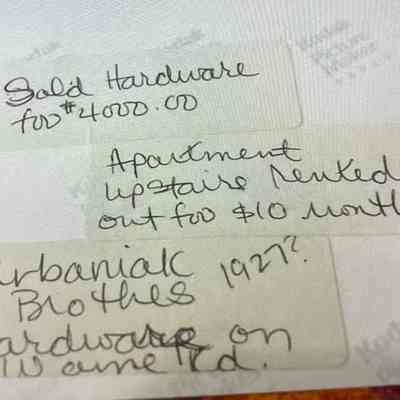 Sold Hardware
for $4000.00
Apartment
upstairs rented
out for $10 month
Urbaniak 1927?
Brothes
ardware on
Wayne Rd.
Kodak
Picture